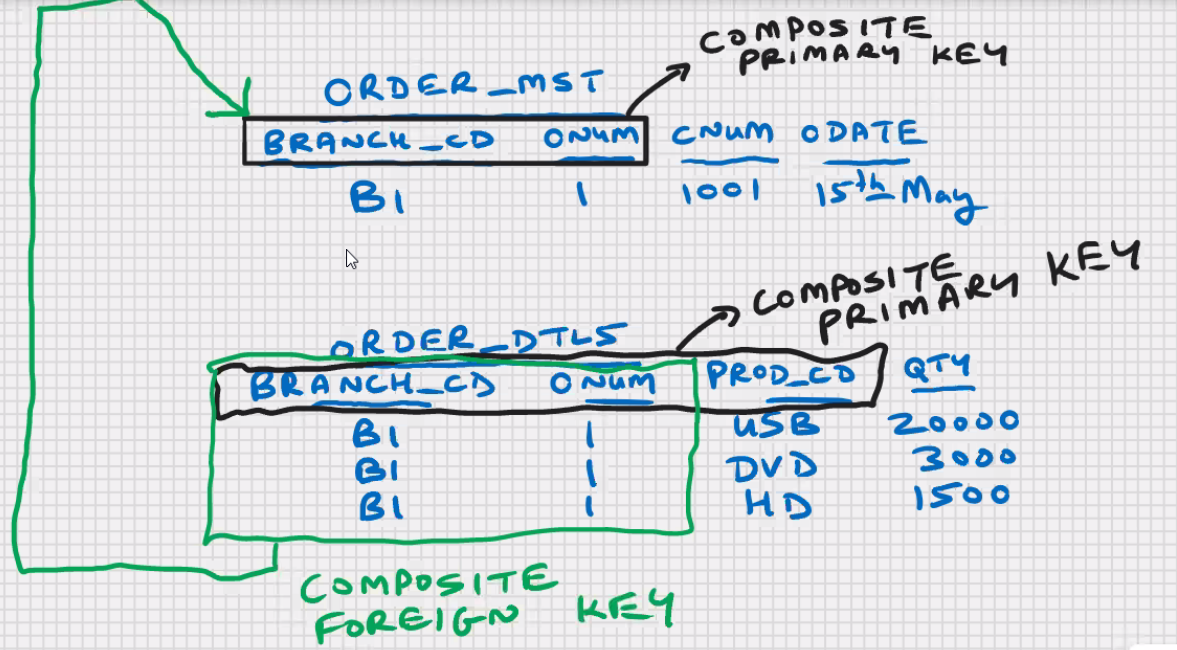 COMPOSITE
PRIMARY KEY
ORDER_MST
BRANCH_CD ONUM CNUM ODATE
B1 1 1001 15th May
COMPOSITE
PRIMARY KEY
ORDER_DTLS
BRANCH_CD ONUM PROD_CD QTY
B1 1 USB 20000
B1 1 DVD 3000
B1 1 HD 1500
COMPOSITE
FOREIGN KEY